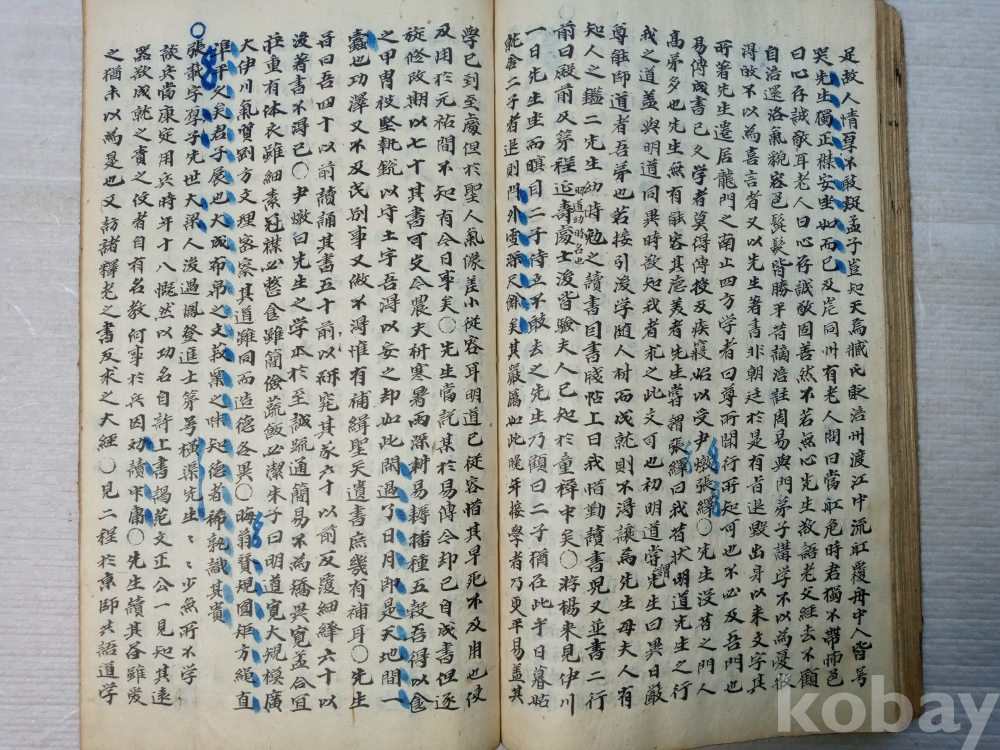 足敖人情單不敢疑孟子豈知天焉臧氏貶涪州渡江中流舡覆舟中人皆号
哭先生獨正襟安坐如而已及岸同舟有老人問曰當舡危時君獨不帶怖色
曰心存誠敬耳老人曰心存誠敬固善然不若無心先生敖語老父經去不顧
自涪還洛氣貌容色髭髮皆勝平昔謫涪註周易與門弟子講學不以為憂赦
得故不以為喜言者又以先生著書非朝廷於是有旨退毀出身以來文字其
所著先生遷居龍門之南止四方学者曰尊所聞行所知可也不必及吾門也
易傳成書已久学者莫得傳授及疾寢始以受尹焞張繹○先生沒昔之門人
高弟多也先生無有能容其澹美者先生嘗謂張繹曰我昔狀明道先生之行
我之道盖與明道同異時欲知我者求之此文可也初明道嘗謂先生曰異日嚴
尊能師道者吾弟也若接引後学随人材而成就則不得讓焉先生母夫人有
知人之鑑二先生幼時勉之讀書囙書牋帖上曰我惜勤讀書児又並書二行
前曰殿前及第程延壽明道幼時名也處士後皆驗夫人已知於童穉中矣○游楊来見伊川
一日先生坐而瞑目二子侍立不敢去之先生乃顧曰二子猶在此乎日暮姑
就舍二子者退則門外雪深尺餘矣其嚴厲如此晚年接學者乃更平易盖其
學已到至處但於聖人氣像差小從容耳明道已從容惜其早死不及用也使
及用於元祐間不知有今日事矣○先生嘗説某於易傳今却已自成書但逐
旋修改期以七十其書可出今農夫祈寒暑雨深耕易耨播種五穀吾得以食
之甲冑被堅執銳以守土宇吾得以安之却如此閒過了日月即是天地間一
蠹也功澤又不及民别事又做不得惟有補緝聖人遺書庶幾有補耳○先生
昔曰吾四十以前讀誦其書五十前以研究其義六十以前反覆紬繹六十以
後著書不得已○尹焞曰先生之学本於至誠疏通簡易不為矯異寬盂合宜
莊重有体衣雖細素冠襟必整食雖簡儉蔬飯必潔朱子曰明道寛大規模廣
大伊川氣質剛方文理密察其道雖同而造德各異○晦翁賛規圓矩方繩直
準平久矣君子辰也大成布帛之文菽粟之味知德者稀孰識其貴
○張載字厚子先世大梁人後過鳳登進士第号橫渠先生〻〻少無所不学
談兵當康定用兵時年十八慨然以功名自許上書謁范文正公一見知其遠
器欲成就之責之伩者自有名教何事於兵因劝讀中庸○先生續其書雖爱
之猶未以為足也又訪諸釋老之書反求之大經○見二程於京師共語道学
kobay